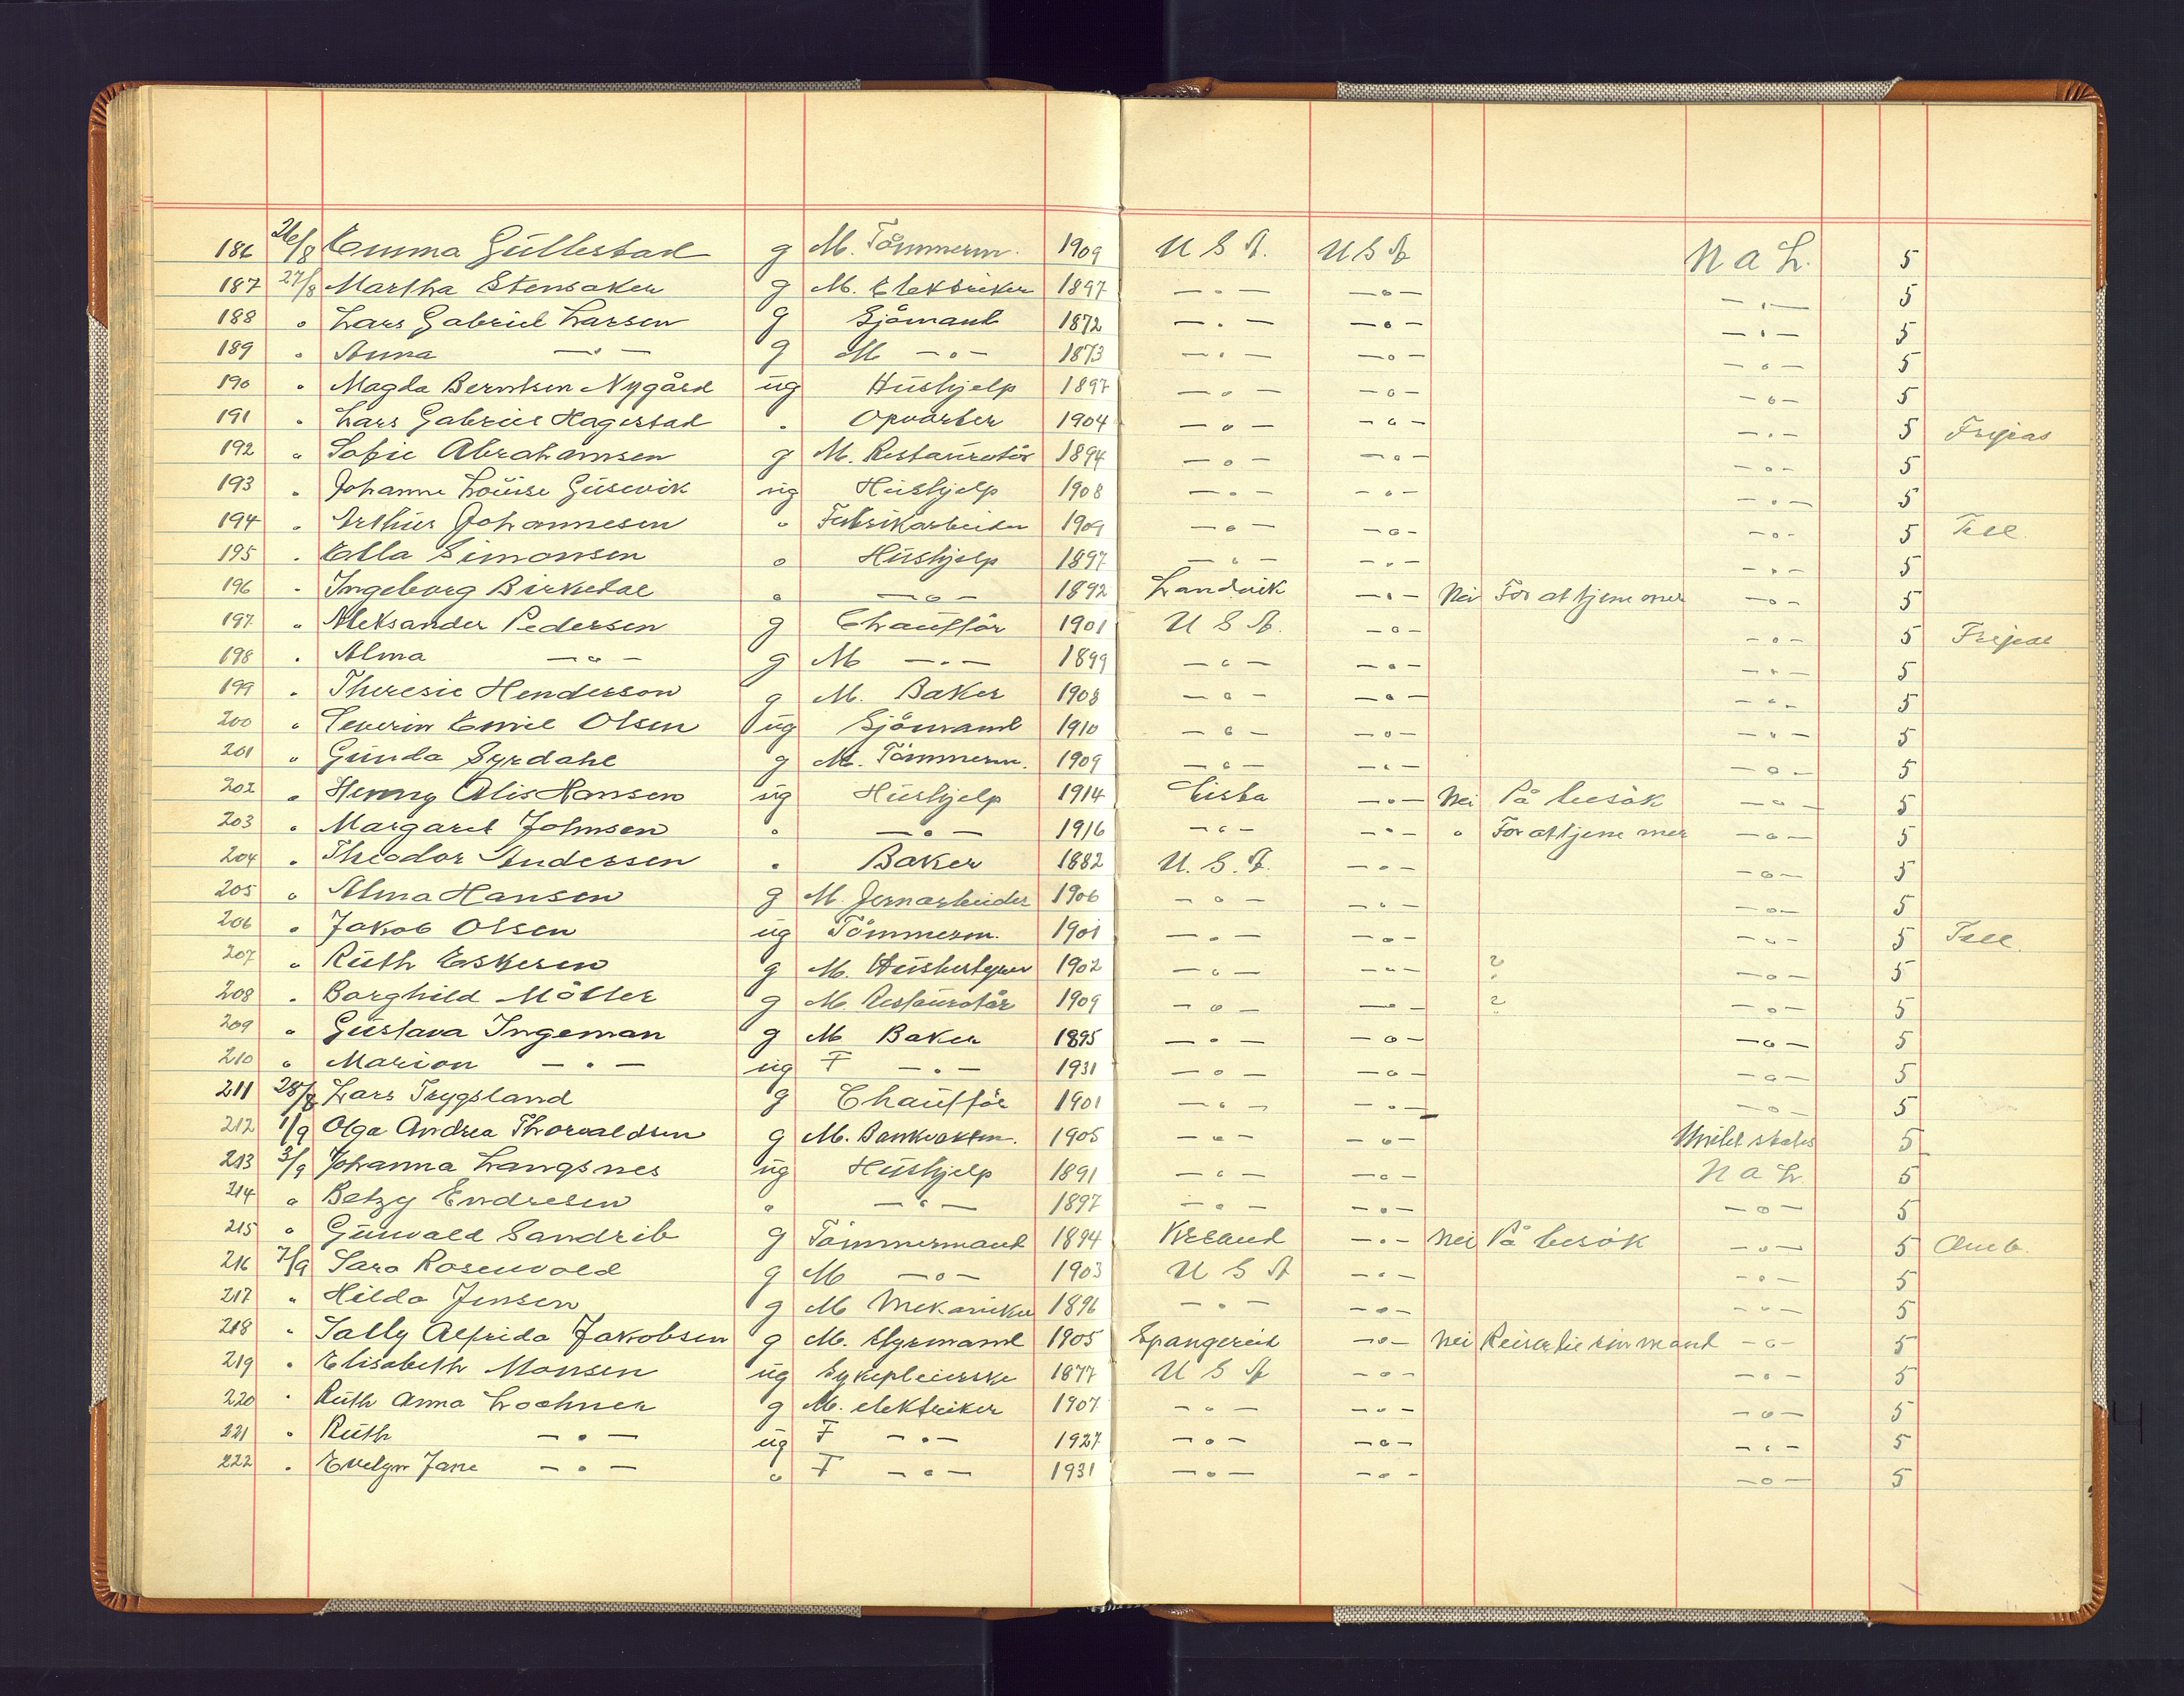 186 26/8 Emma Gullestad g M. Tömmerm. 1909 U S A. U S A N a L. 5
187 27/8 Martha Stensaker g M. Elektriker 1897 — " — — o — — " — 5
188 " Lars Gabriel Larsen g Sjömand 1872 — " — — o — — " — 5
189 " Anna — " — g M — o — 1873 — " — — o — — o — 5
190 " Magda Berntsen Nygård ug Hushjelp 1897 — o — — o — — o — 5
191 " Lars Gabriel Hagestad " Opvarter 1904 — o — — o — — " — 5 Fripas
192 " Sofie Abrahamsen g M. Restauratör 1894 — o — — o — — o — 5
193 " Johanne Louise Gusevik ug Hushjelp 1908 — o — — o — — o — 5
194 " Arthur Johannesen " Fabrikarbeider 1909 — o — — o — — o — 5
195 " Ella Simonsen o Hushjelp 1897 — " — — " — — " — 5
196 " Ingeborg Birkedal o — o — 1892 Landvik — " — Nei For at tjene mer — o — 5
197 " Aleksander Pedersen g Chaufför 1901 U S A. — o — — o — 5
198 " Alma — " — g M — " — 1899 — o — — o — — " — 5
199 " Theresie Henderson g M. Baker 1908 — o — — o — — o — 5
200 " Severin Emil Olsen ug Sjömand 1910 — o — — o — — " — 5
201 " Gunda Syrdahl g M. Tömmerm. 1909 — o — — o — — o — 5
202 " Henny Alis Hansen ug Hushjelp 1914 Lista — o — Nei På besök — o — 5
203 " Margaret Johnsen " — o — 1916 — o — — o — " For at tjene mer — o — 5
204 " Theodor Andersen " Baker 1882 U. S. A. — o — — o — 5
205 " Alma Hansen g M. Jernarbeider 1906 — o — — o — — o — 5
206 " Jakob Olsen ug Tömmerm. 1901 — o — — o — — o — 5
207 " Ruth Eskesen g M. 1902 — o — — " — ? — o — 5
208 " Borghild Möller g M. Restauratör 1909 — o — — o — ? — o — 5
209 " Gustava Ingeman g M Baker 1895 — o — — o — — o — 5
210 " Marion — " — ug F — " — 1931 — o — — o — — o — 5
211 28/8 Lars Trygsland g Chaufför 1901 — o — — o — — o — 5
212 1/9 Olga Andrea Thorvaldsen g M. 1905 — o — — o — Unitet states 5
213 3/9 Johanna Langsnes ug Hushjelp 1891 — o — — o — N a L 5
214 " Betzy Endresen " — " — 1897 — o — — o — — o — 5
215 " Gunvald Sandrib g Tömmermand 1894 Krsand — " — Nei På besök — o — 5
216 7/9 Sara Rosenvold g M — o — 1903 U S A — " — — o — 5
217 " Hilda Jensen g M Mekaniker 1896 — " — — o — — o — 5
218 " Sally Alfrida Jakobsen g M. Styrmand 1905 Spangereid — o — Nei Reiser til sin mand — o — 5
219 " Elisabeth Monsen ug Sykepleierske 1877 U S A — o — — o — 5
220 " Ruth Anna Lochner g M. elektriker 1907 — o — — o — — o — 5
221 " Ruth — o — ug F — o — 1927 — o — — o — — " — 5
222 " Evelyn Jane — o — " F — o — 1931 — o — — o — — o — 5